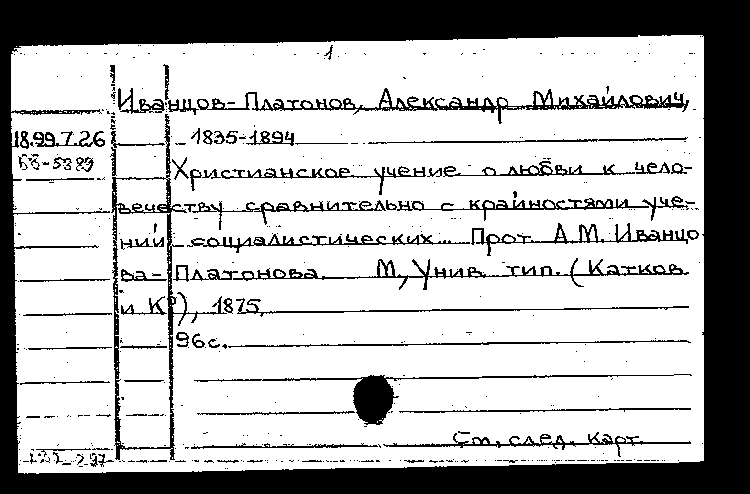 1
Иванцов-Платонов, Александр Михайлович,
18.99.7.26
1835-1894
Христианское учение о любви к чело-
вечеству сравнительно с крайностями уче-
ний социалистических... Прот. А.М. Иванцо
ва-Платонова. М., Унив. тип. (Катков
и К°), 1875.
96с.
См. след. карт.